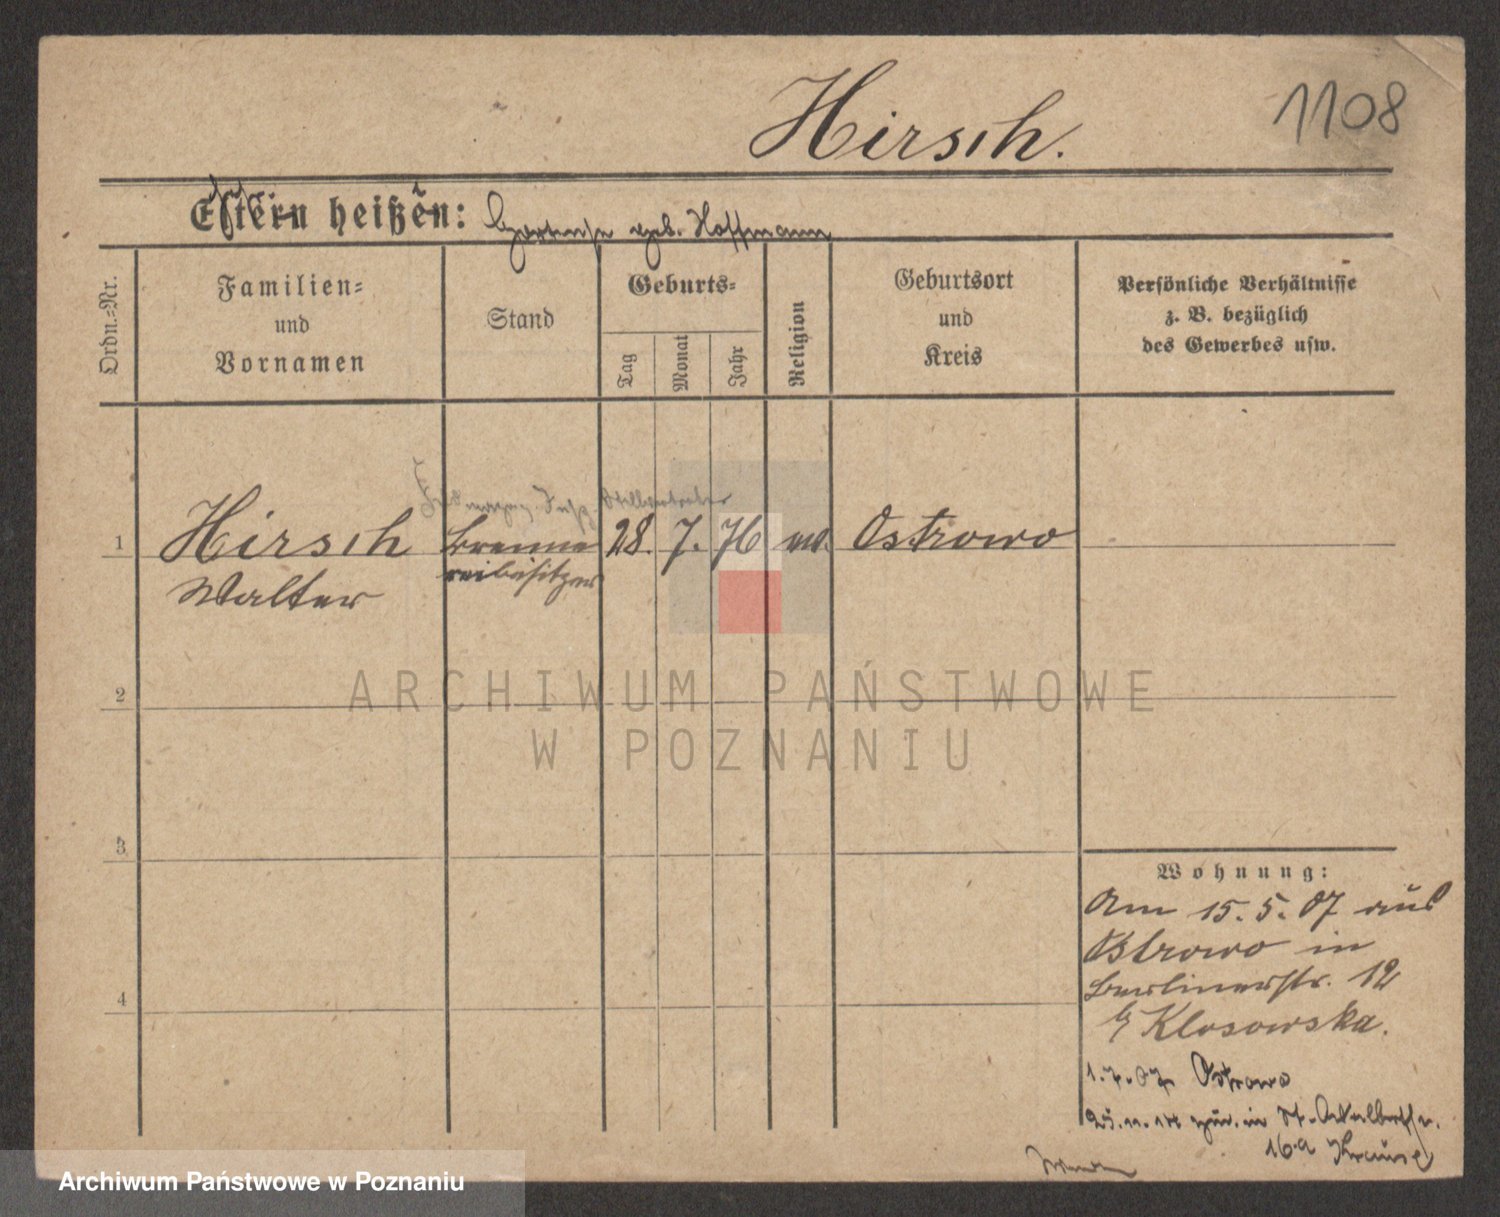 Hirsch.
1108
Eltern heißen: geb. Hoffmann
Ordn.-Nr.
Familien-
und
Vornamen
Stand
Geburts-
Tag
Monat
Jahr
Religion
Geburtsort
und
Kreis
Persönliche Verhältnisse
z. B. bezüglich
des Gewerbes usw.
1
Hirsch
Walter
Brenne
reibesitzer
28. 7. 76
Ostrowo
2
3
4
Wohnung:
Am 15.5.07 aus
Ostrowo in
Berlinerstr. 12
b/ Klosowska.
1.7.07 Ostrowo
zur. in St. Adalbertstr.
16a Krause
ARCHIWUM PAŃSTWOWE
W POZNANIU
Archiwum Państwowe w Poznaniu